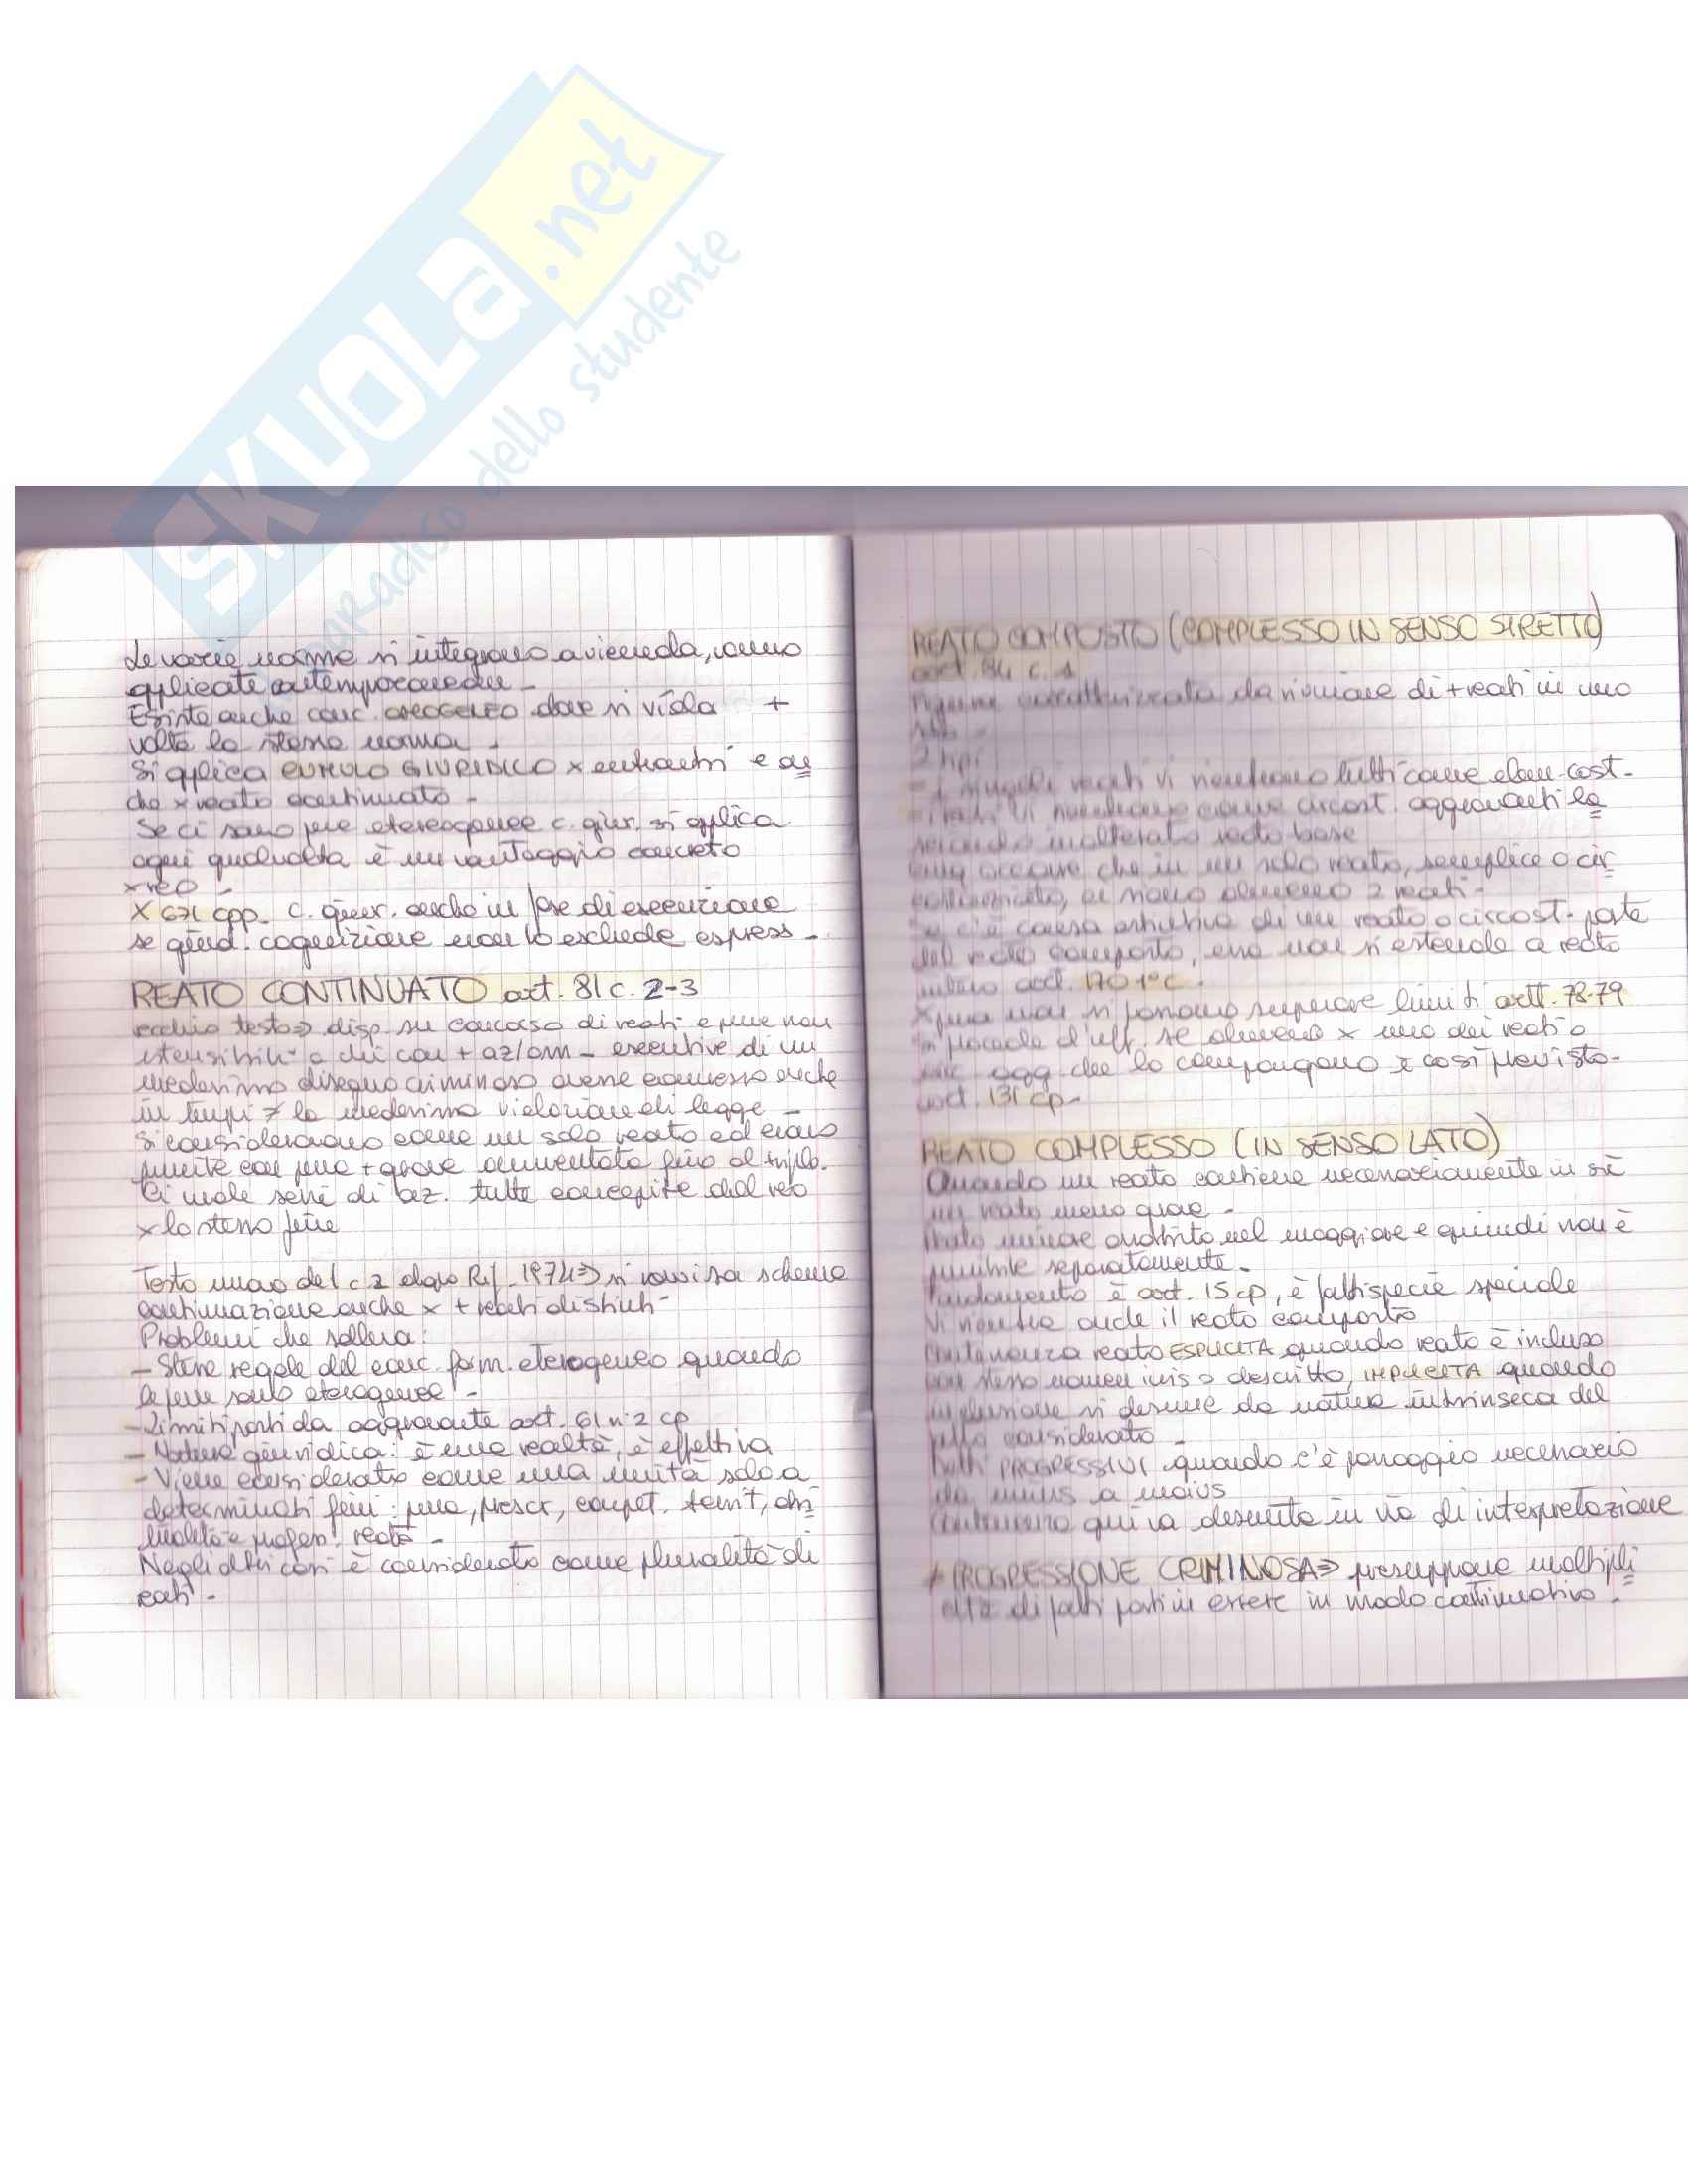 SKUOLA.net
paradiso dello studente
Le varie norme si integrano a vicenda, vanno
applicate contemporaneam -
Esiste anche conc. OMOGENEO dove si viola +
volte la stessa norma -
Si applica CUMULO GIURIDICO x entrambi e an
che x reato continuato -
Se ci sono pene eterogenee c. giur. si applica
ogni qualvolta è un vantaggio concreto
x reo -
X 671 cpp. c. giur. anche in fase di esecuzione
se giud. cognizione non lo esclude espress -
REATO CONTINUATO art. 81 c. 2-3
vecchio testo ⇒ disp. su concorso di reati e pene non
estensibili a chi con + az/om - esecutive di un
medesimo disegno criminoso avesse commesso anche
in tempi ≠ la medesima violazione di legge -
Si consideravano come un solo reato ed erano
punite con pena + grave aumentata fino al triplo.
Ci vuole serie di az. tutte concepite dal reo
x lo stesso fine
Testo nuovo del c 2 dopo Rif. 1974 ⇒ si ravvisa schema
continuazione anche x + reati distinti
Problemi che solleva:
- Stesse regole del conc. form. eterogeneo quando
le pene sono eterogenee -
- Limiti posti da aggravante art. 61 n. 2 cp
- Natura giuridica: è una realtà, è effettiva
- Viene considerato come una unità solo a
determinati fini: pena, prescr, compet. territ, abi
tualità e profess. reato -
Negli altri casi è considerato come pluralità di
reati -
REATO COMPOSTO (COMPLESSO IN SENSO STRETTO)
art. 84 c. 1
Figura caratterizzata da riunione di + reati in uno
solo -
2 tipi
- I singoli reati vi rientrano tutti come elem. cost.
- reati vi rientrano come circost. aggravanti la
sciando inalterato reato base
occorre che in un solo reato, semplice o cir
costanziato, ci siano almeno 2 reati -
Se c'è causa estintiva di un reato o circost. parte
del reato composto, essa non si estende a reato
intero art. 170 1° c.
X pena non si possono superare limiti artt. 78-79
Si procede d'uff. se almeno x uno dei reati o
circ. agg. che lo compongono è così previsto -
art. 131 cp -
REATO COMPLESSO (IN SENSO LATO)
Quando un reato contiene necessariamente in sé
un reato meno grave -
Reato minore assorbito nel maggiore e quindi non è
punibile separatamente -
Fondamento è art. 15 cp, è fattispecie speciale
Vi rientra anche il reato composto
Contenenza reato ESPLICITA quando reato è incluso
con stesso nomen iuris o descritto, IMPLICITA quando
inclusione si desume da natura intrinseca del
fatto considerato -
Reati PROGRESSIVI quando c'è passaggio necessario
da minus a maius
Continenza qui va desunta in via di interpretazione
≠ PROGRESSIONE CRIMINOSA ⇒ presuppone moltepli
cità di fatti posti in essere in modo continuativo -